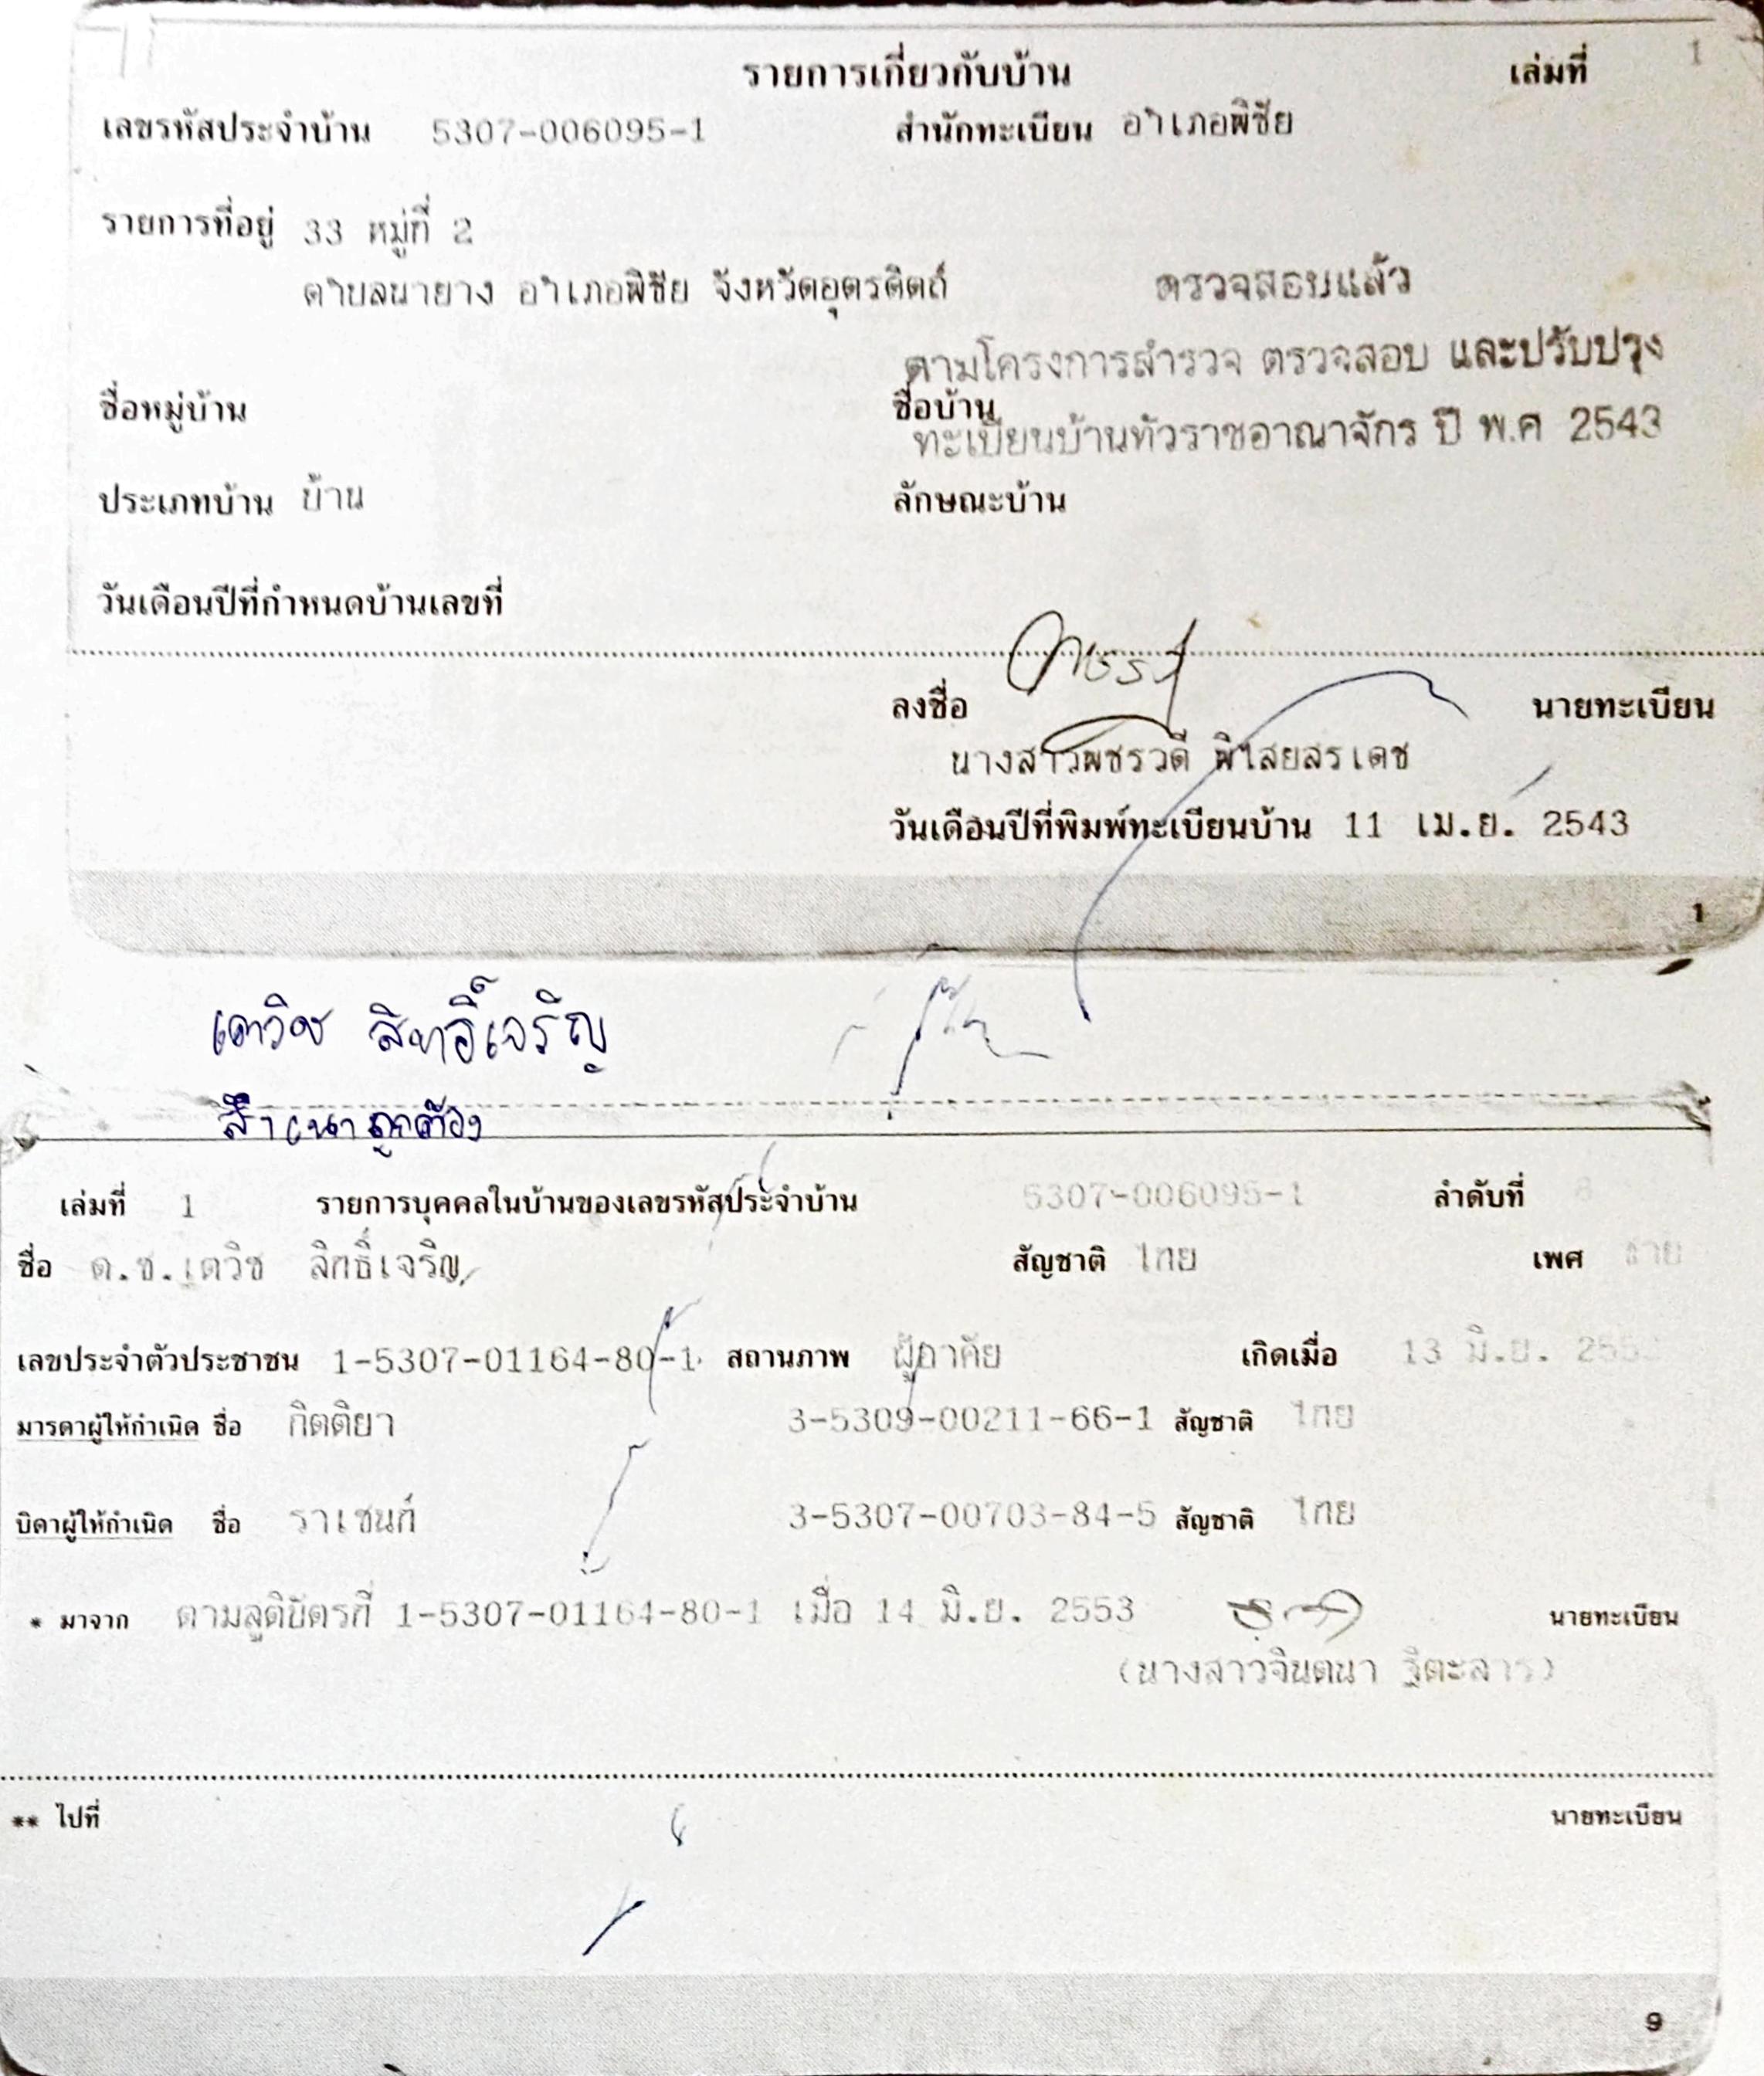 รายการเกี่ยวกับบ้าน เล่มที่ 1
เลขรหัสประจำบ้าน 5307-006095-1 สำนักทะเบียน อำเภอพิชัย
รายการที่อยู่ 33 หมู่ที่ 2
ตำบลนายาง อำเภอพิชัย จังหวัดอุตรดิตถ์ ตรวจสอบแล้ว
ตามโครงการสำรวจ ตรวจสอบ และปรับปรุง
ชื่อหมู่บ้าน ชื่อบ้าน
ทะเบียนบ้านทั่วราชอาณาจักร ปี พ.ศ 2543
ประเภทบ้าน บ้าน ลักษณะบ้าน
วันเดือนปีที่กำหนดบ้านเลขที่
ลงชื่อ นายทะเบียน
นางสาวพชรวดี
วันเดือนปีที่พิมพ์ทะเบียนบ้าน 11 เม.ย. 2543
1
เตวิช สิทธิ์เจริญ
สำเนาถูกต้อง
เล่มที่ 1 รายการบุคคลในบ้านของเลขรหัสประจำบ้าน 5307-006095-1 ลำดับที่ 8
ชื่อ ด.ช.เตวิช สิทธิ์เจริญ สัญชาติ ไทย เพศ ชาย
เลขประจำตัวประชาชน 1-5307-01164-80-1 สถานภาพ ผู้อาศัย เกิดเมื่อ 13 มิ.ย. 2553
มารดาผู้ให้กำเนิด ชื่อ กิตติยา 3-5309-00211-66-1 สัญชาติ ไทย
บิดาผู้ให้กำเนิด ชื่อ ราเชนท์ 3-5307-00703-84-5 สัญชาติ ไทย
* มาจาก ตามสูติบัตรที่ 1-5307-01164-80-1 เมื่อ 14 มิ.ย. 2553 นายทะเบียน
(นางสาวจินตนา ฐิตะสาร)
** ไปที่ นายทะเบียน
9